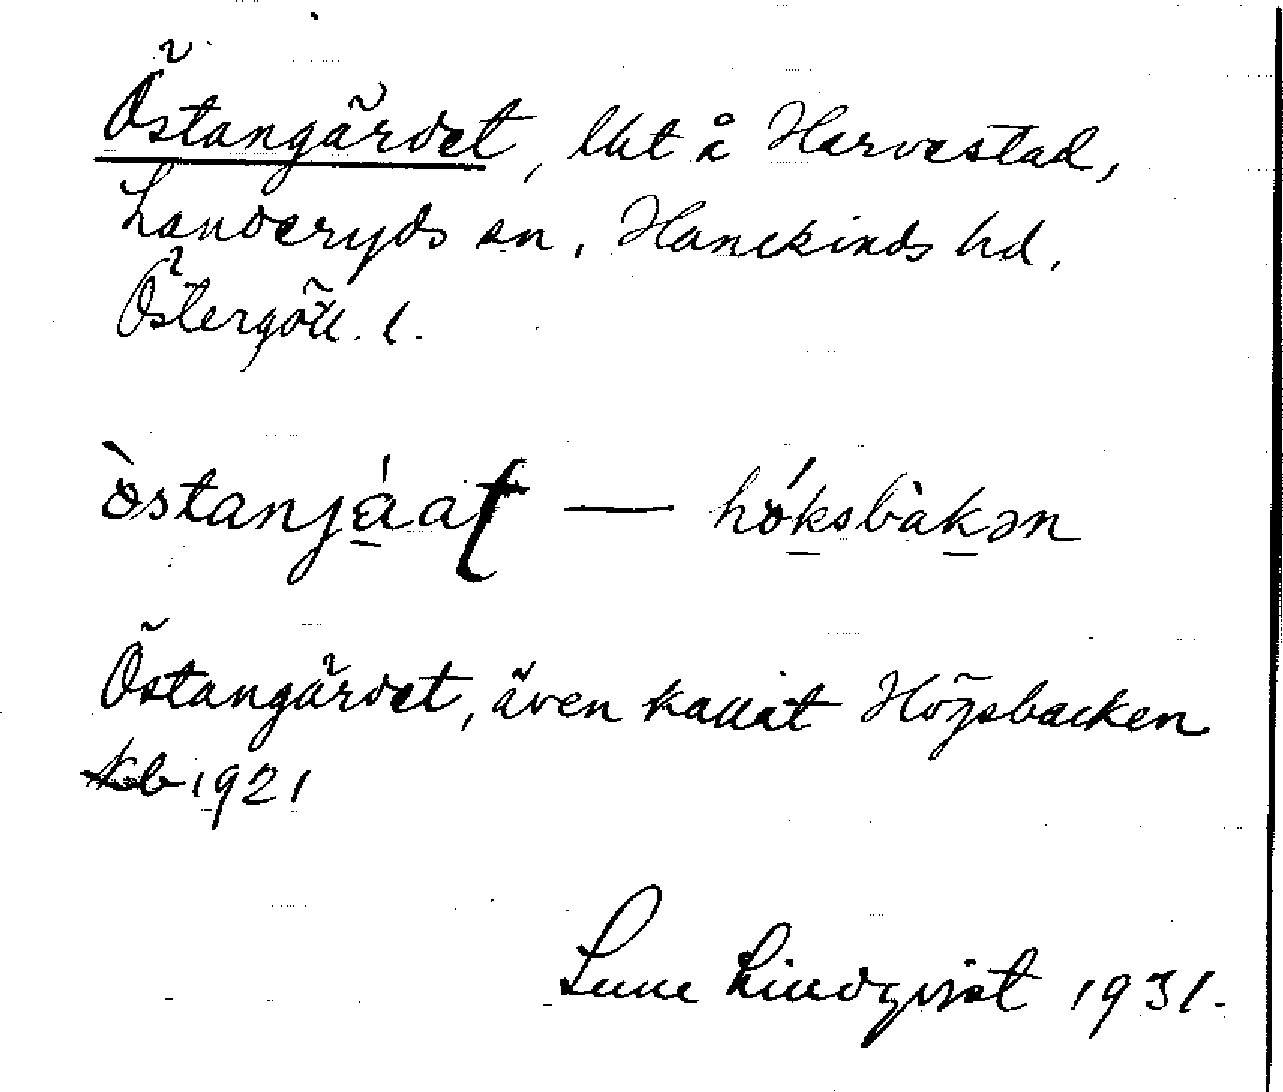 Östangärdet, lht å Harvestad,
Landeryds sn, Hanekinds hd,
Östergötl. l.
òstanjáat — hóksbàkən
Östangärdet, även kallat Högsbacken
kb 1921
Sune Lindqvist 1931.